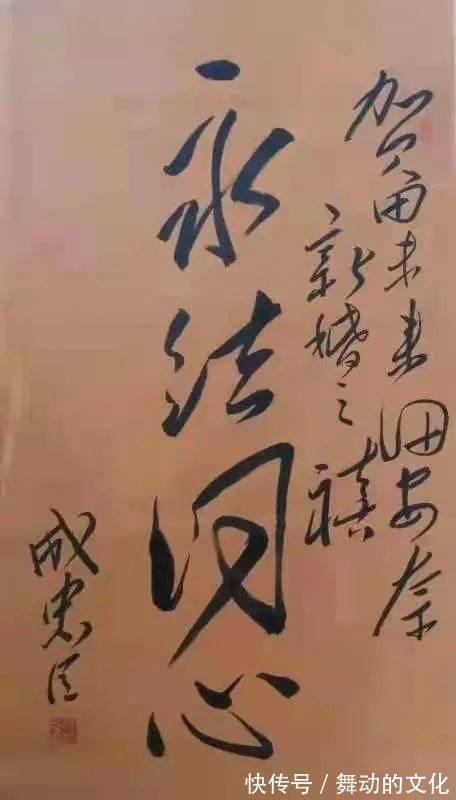 贺 未来 安奈
新婚之禧
永结同心
成忠臣
快传号 / 舞动的文化